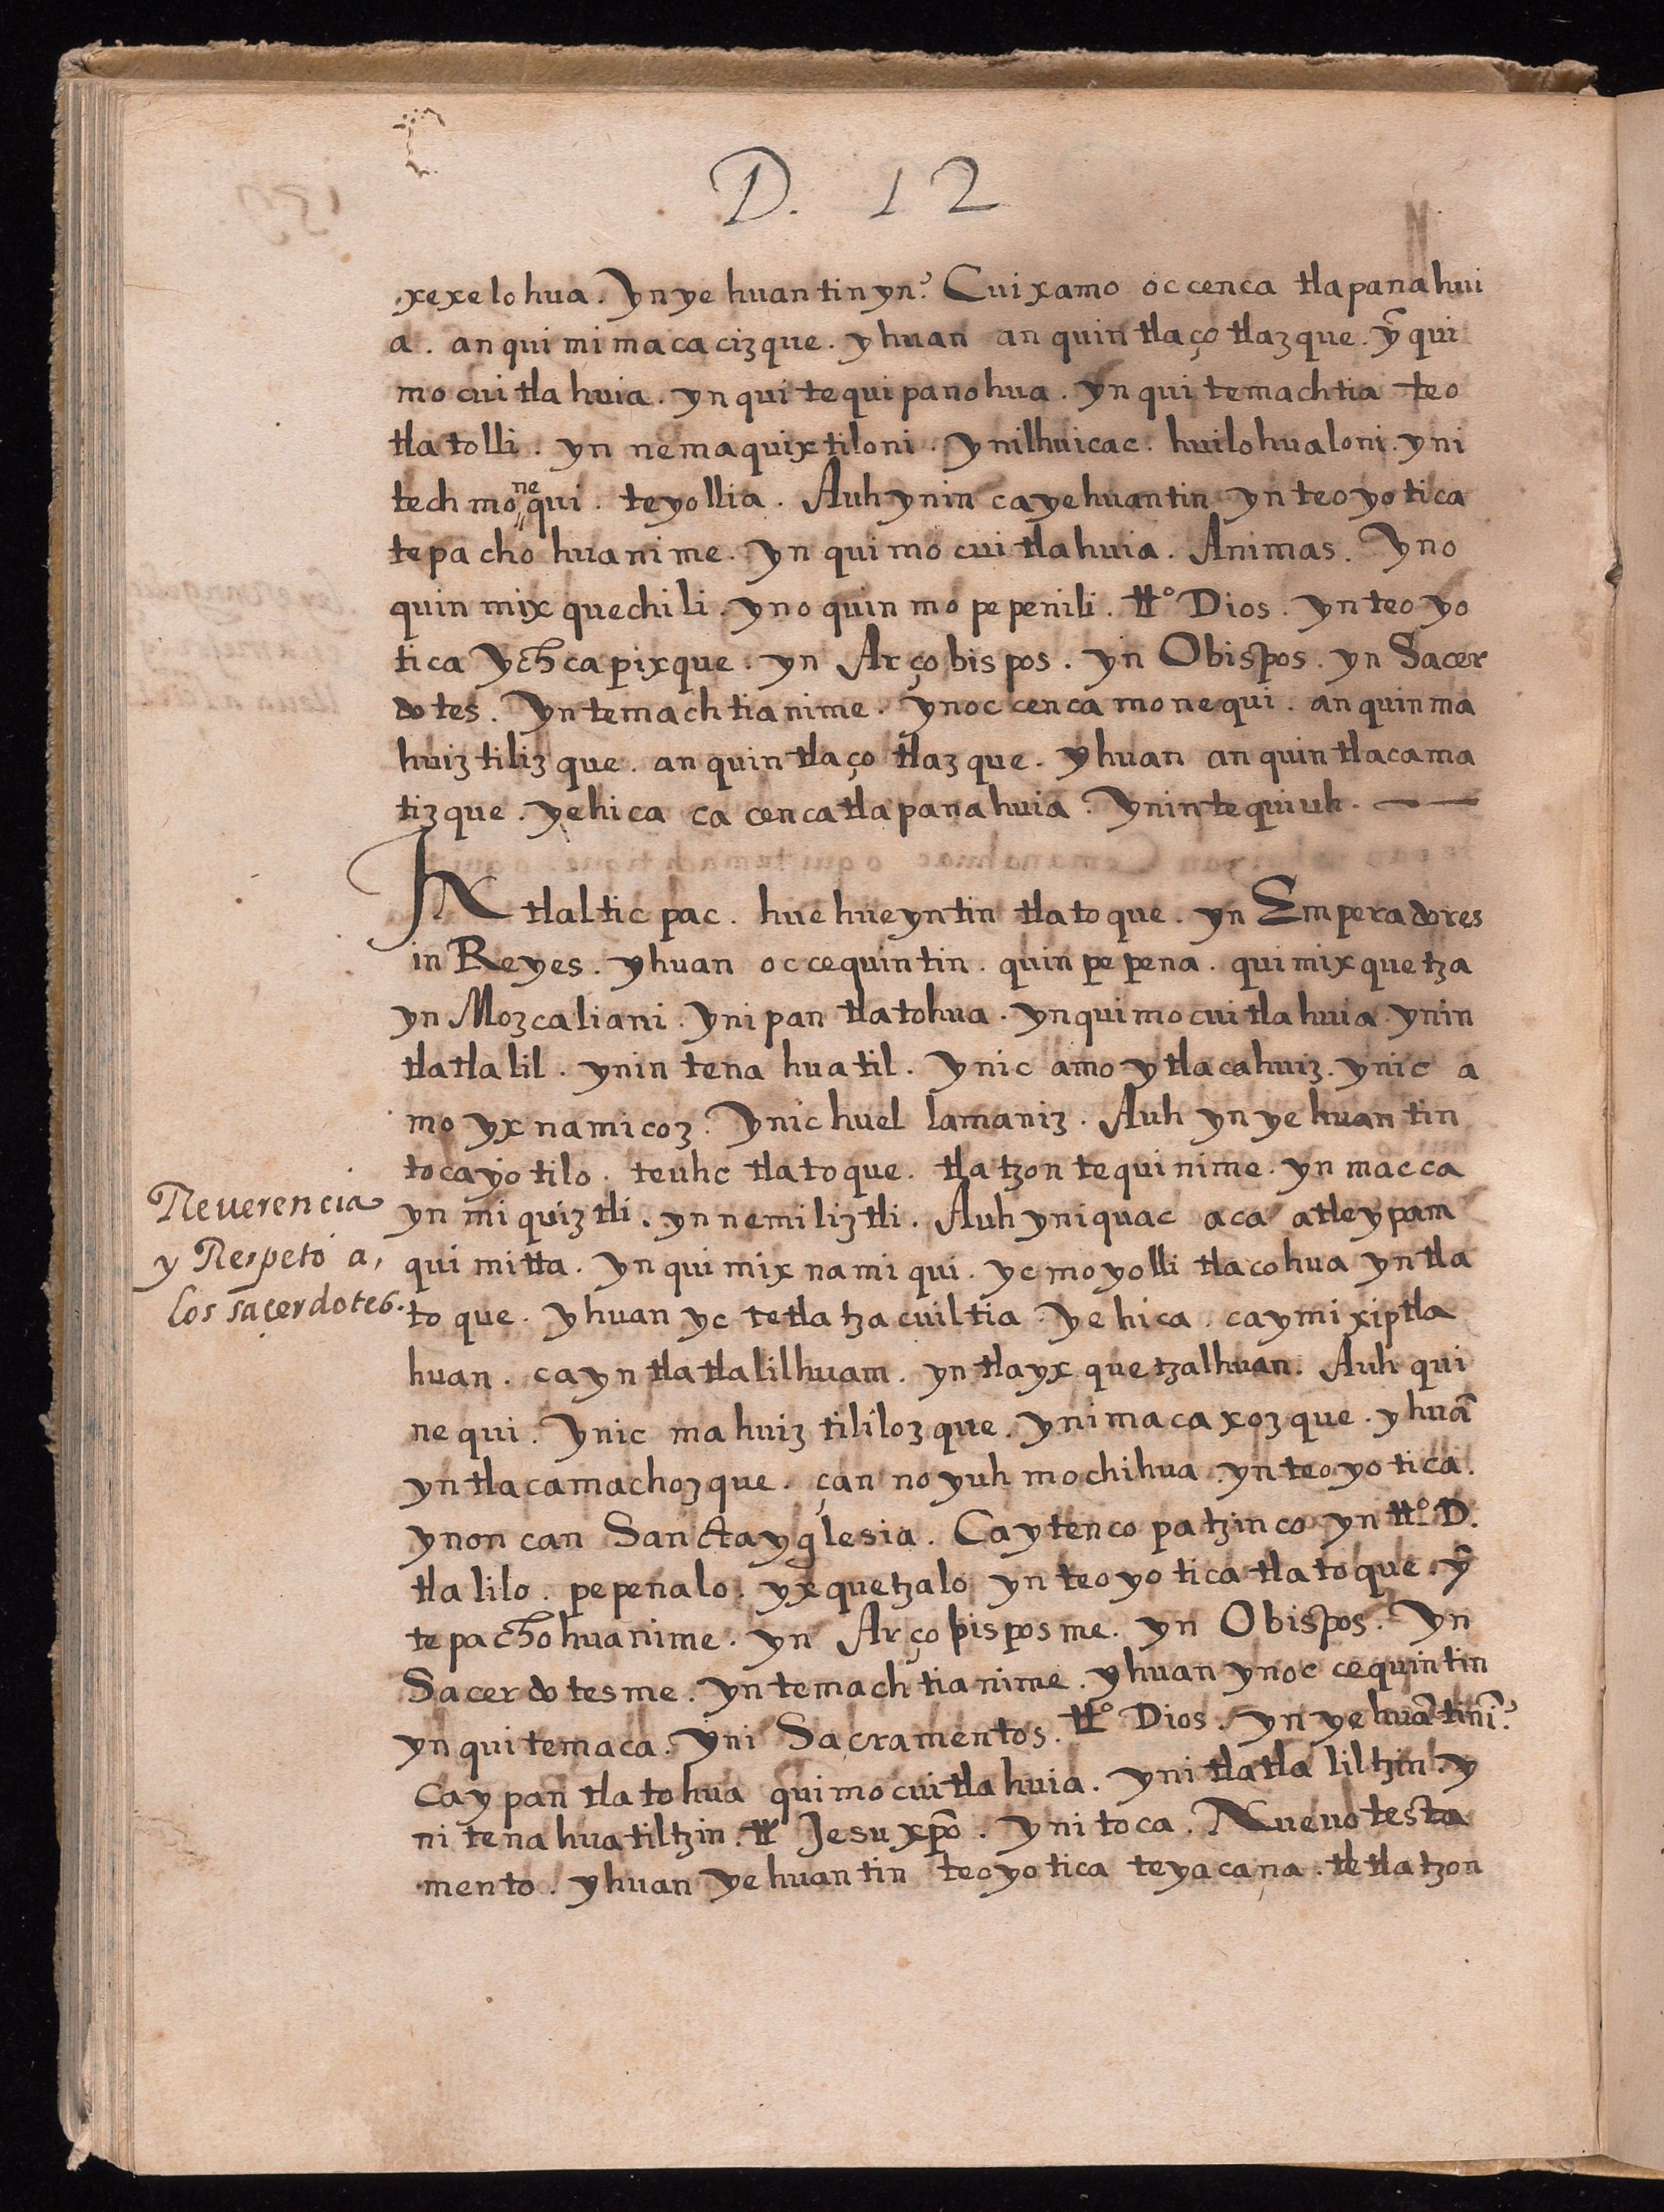 D. 12
xexelohua. Ynyehuantinyn? Cuixamo occenca tlapanahui
a. anquimimacacizque. yhuan anquintlaçotlazque. yˉ qui
mocuitlahuia. ynquitequipanohua. ynquitemachtia teo
tlatolli. yn nemaquixtiloni. ynilhuicac. huilohualoni. yni
tech monequi. teyollia. Auh ynin cayehuantin ynteoyotica
tepachohuanime. yn quimocuitlahuia. Animas. Yno
quinmixquechili. ynoquinmopepenili. ttº Dios. ynteoyo
tica ychcapixque. yn Arçobispos. yn Obispos. yn Sacer
dotes. Yntemachtianime. ynoccenca monequi. anquinma
huiztilizque. anquintlaçotlazque. yhuan anquintlacama
tizque. yehica ca cencatlapanahuia. Ynintequiuh.
IN tlalticpac. huehueyntin tlatoque. yn Emperadores
in Reyes. yhuan occequintin. quinpepena. quimixquetza
yn Mozcaliani. ynipan tlatohua. ynquimocuitlahuia. ynin
tlatlalil. ynin tenahuatil. Ynic amo ytlacahuiz. ynic a
mo yxnamicoz. Ynic huel lamaniz. Auh yn yehuantin
tocayotilo. teuhc tlatoque. tlatzontequinime. yn macca
yn miquiztli. ynnemiliztli. Auh yniquac aca atleypam
quimitta. ynquimixnamiqui. yc moyollitlacohua yntla
toque. yhuan yc tetlatzacuiltia. yehica. caymixiptla
huan. cayntlatlalilhuam. yntlayxquetzalhuan. Auh qui
nequi. Ynic mahuiztililozque. ynimacaxozque. yhuã
yntlacamachozque. çan noyuh mochihua ynteoyotica.
ynoncan Sanctayglesia. Caytencopatzinco yn ttº D.
tlalilo. pepenalo. yxquetzalo ynteoyoticatlatoque. yˉ
tepachohuanime. yn Arçobisposme. yn Obispos. Yn
Sacerdotesme. yntemachtianime. yhuan ynoccequintin
ynquitemaca. Yni Sacramentos. ttº Dios. ynyehuãtinĩ?
Caypan tlatohua quimocuitlahuia. ynitlatlaliltzin. y
nitenahuatiltzin. tt Jesuxpõ. ynitoca. Nueuo testa
mento. yhuan yehuantin teoyotica teyacana. tetlatzon
Reuerencia
y Respeto a,
los sacerdotes.